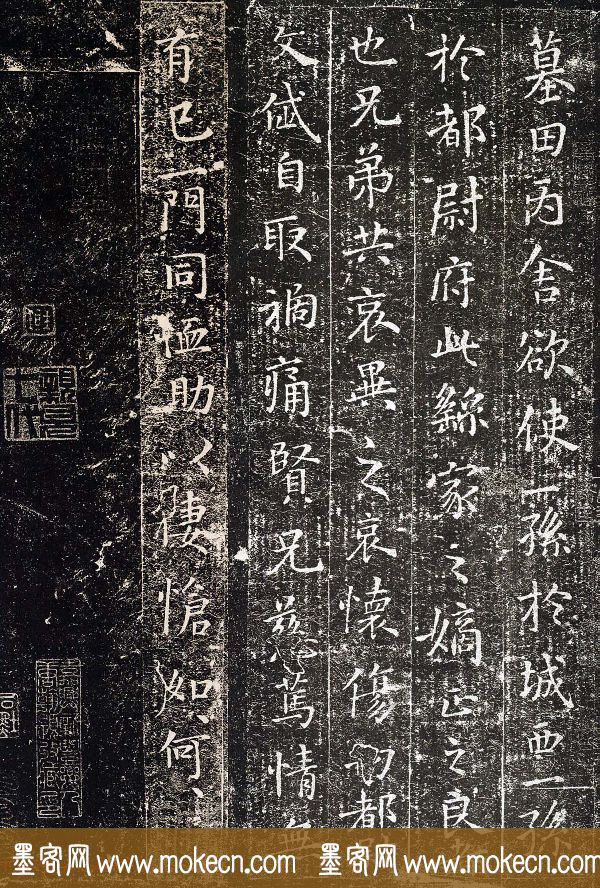 墓田丙舍欲使一孫於城西一孫
於都尉府此繇家之嫡正之良
也兄弟共哀異之哀懷傷切都
文俶自取禍痛賢兄慈篤情無
有已一門同恤助以悽愴如何
墨客网 www.mokecn.com 墨客网 www.mokecn.com